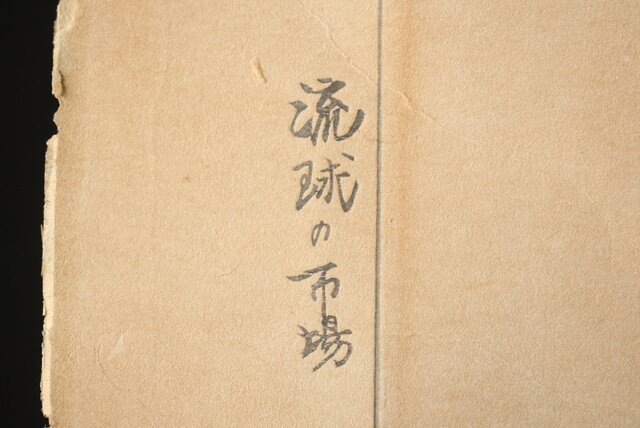 流球の市場